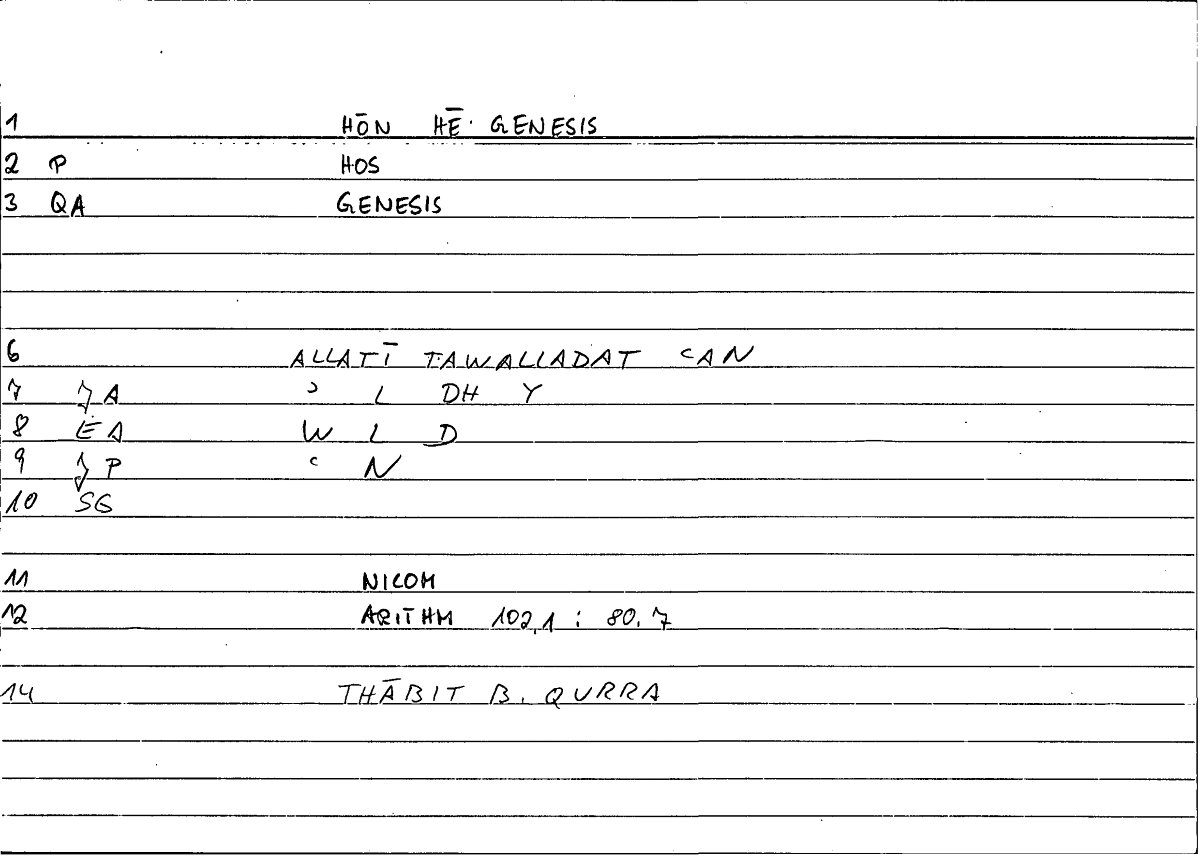 1 HŌN HĒ· GENESIS
2 P HOS
3 QA GENESIS
6 ALLATĪ TAWALLADAT ʿAN
7 JA ʾ L DH Y
8 EA W L D
9 JP ʿ N
10 SG
11 NICOM
12 ARITHM 102,1 : 80.7
14 THĀBIT B. QURRA